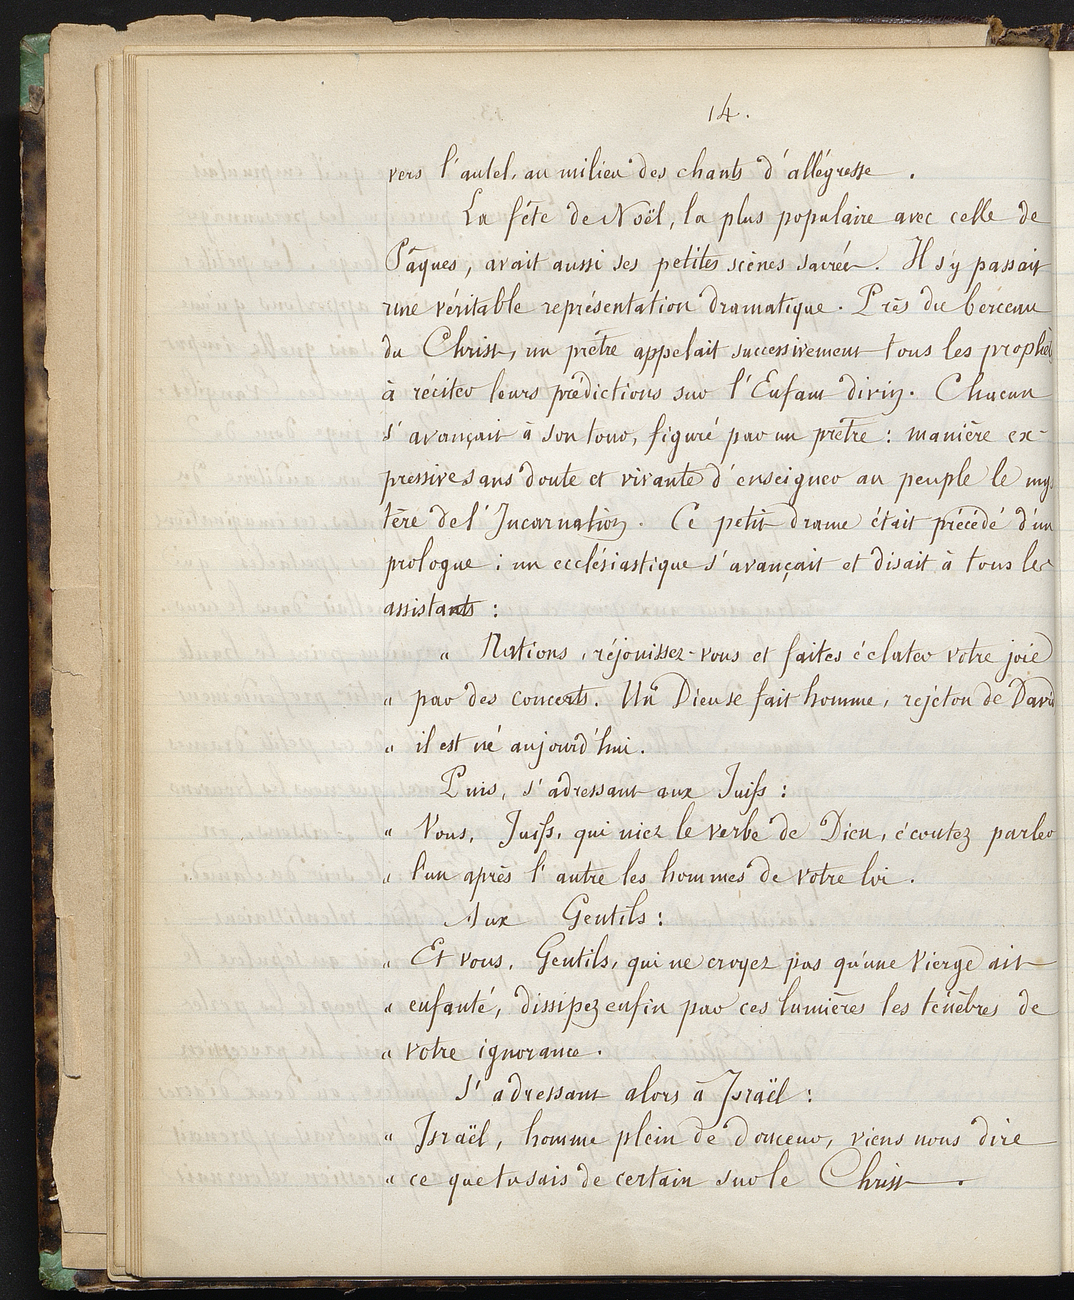 14.
vers l'autel, au milieu des chants d'allégresse .
La fête de Noël, la plus populaire avec celle de
Pâques, avait aussi ses petites scènes sacrées. Il s'y passait
une véritable représentation dramatique. Près du berceau
du Christ, un prêtre appelait successivement tous les prophètes
à réciter leurs prédictions sur l'Enfant divin. Chacun
s'avançait à son tour, figuré par un prêtre : manière ex-
pressive sans doute et vivante d'enseigner au peuple le mys
tère de l'Incarnation. Ce petit drame était précédé d'un
prologue : un ecclésiastique s'avançait et disait à tous les
assistants :
" Nations, réjouissez-vous et faites éclater votre joie
" par des concerts. Un Dieu se fait homme, rejeton de David
" il est né aujourd'hui.
Puis, s'adressant aux Juifs :
" Vous, Juifs, qui niez le verbe de Dieu, écoutez parler
" l'un après l'autre les hommes de votre loi.
Aux Gentils :
" Et vous, Gentils, qui ne croyez pas qu'une Vierge ait
" enfanté, dissipez enfin par ces lumières les ténèbres de
" votre ignorance.
S'adressant alors à Israël :
" Israël, homme plein de douceur, viens nous dire
" ce que tu sais de certain sur le Christ.